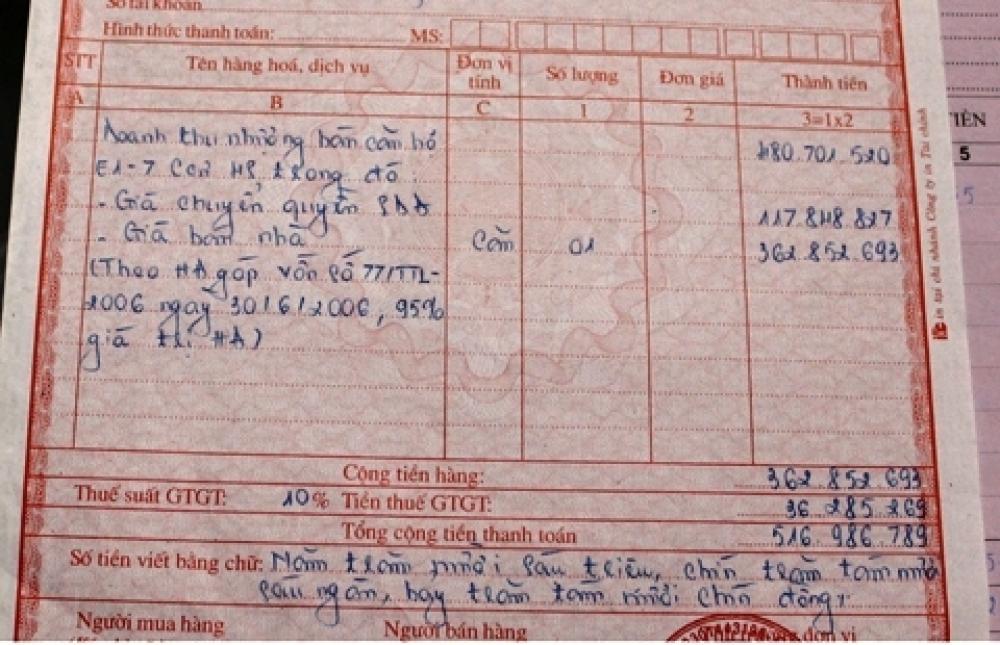 Số tài khoản
Hình thức thanh toán: MS:
STT Tên hàng hoá, dịch vụ Đơn vị tính Số lượng Đơn giá Thành tiền
A B C 1 2 3=1x2
Doanh thu nhượng bán căn hộ 480.701.520
E1-7 Cao trong đó:
- Giá chuyển quyền SDĐ 117.848.827
- Giá bán nhà Căn 01 362.852.693
(Theo HĐ góp vốn số 77/TTL-
2006 ngày 30/6/2006, 95%
giá trị HĐ)
Cộng tiền hàng: 362.852.693
Thuế suất GTGT: 10% Tiền thuế GTGT: 36.285.269
Tổng cộng tiền thanh toán 516.986.789
Số tiền viết bằng chữ: Năm trăm mười sáu triệu, chín trăm tám mươi
sáu ngàn, bảy trăm tám mươi chín đồng
Người mua hàng Người bán hàng đơn vị
in tại chi nhánh Công ty in Tài chính
TIỀN
5